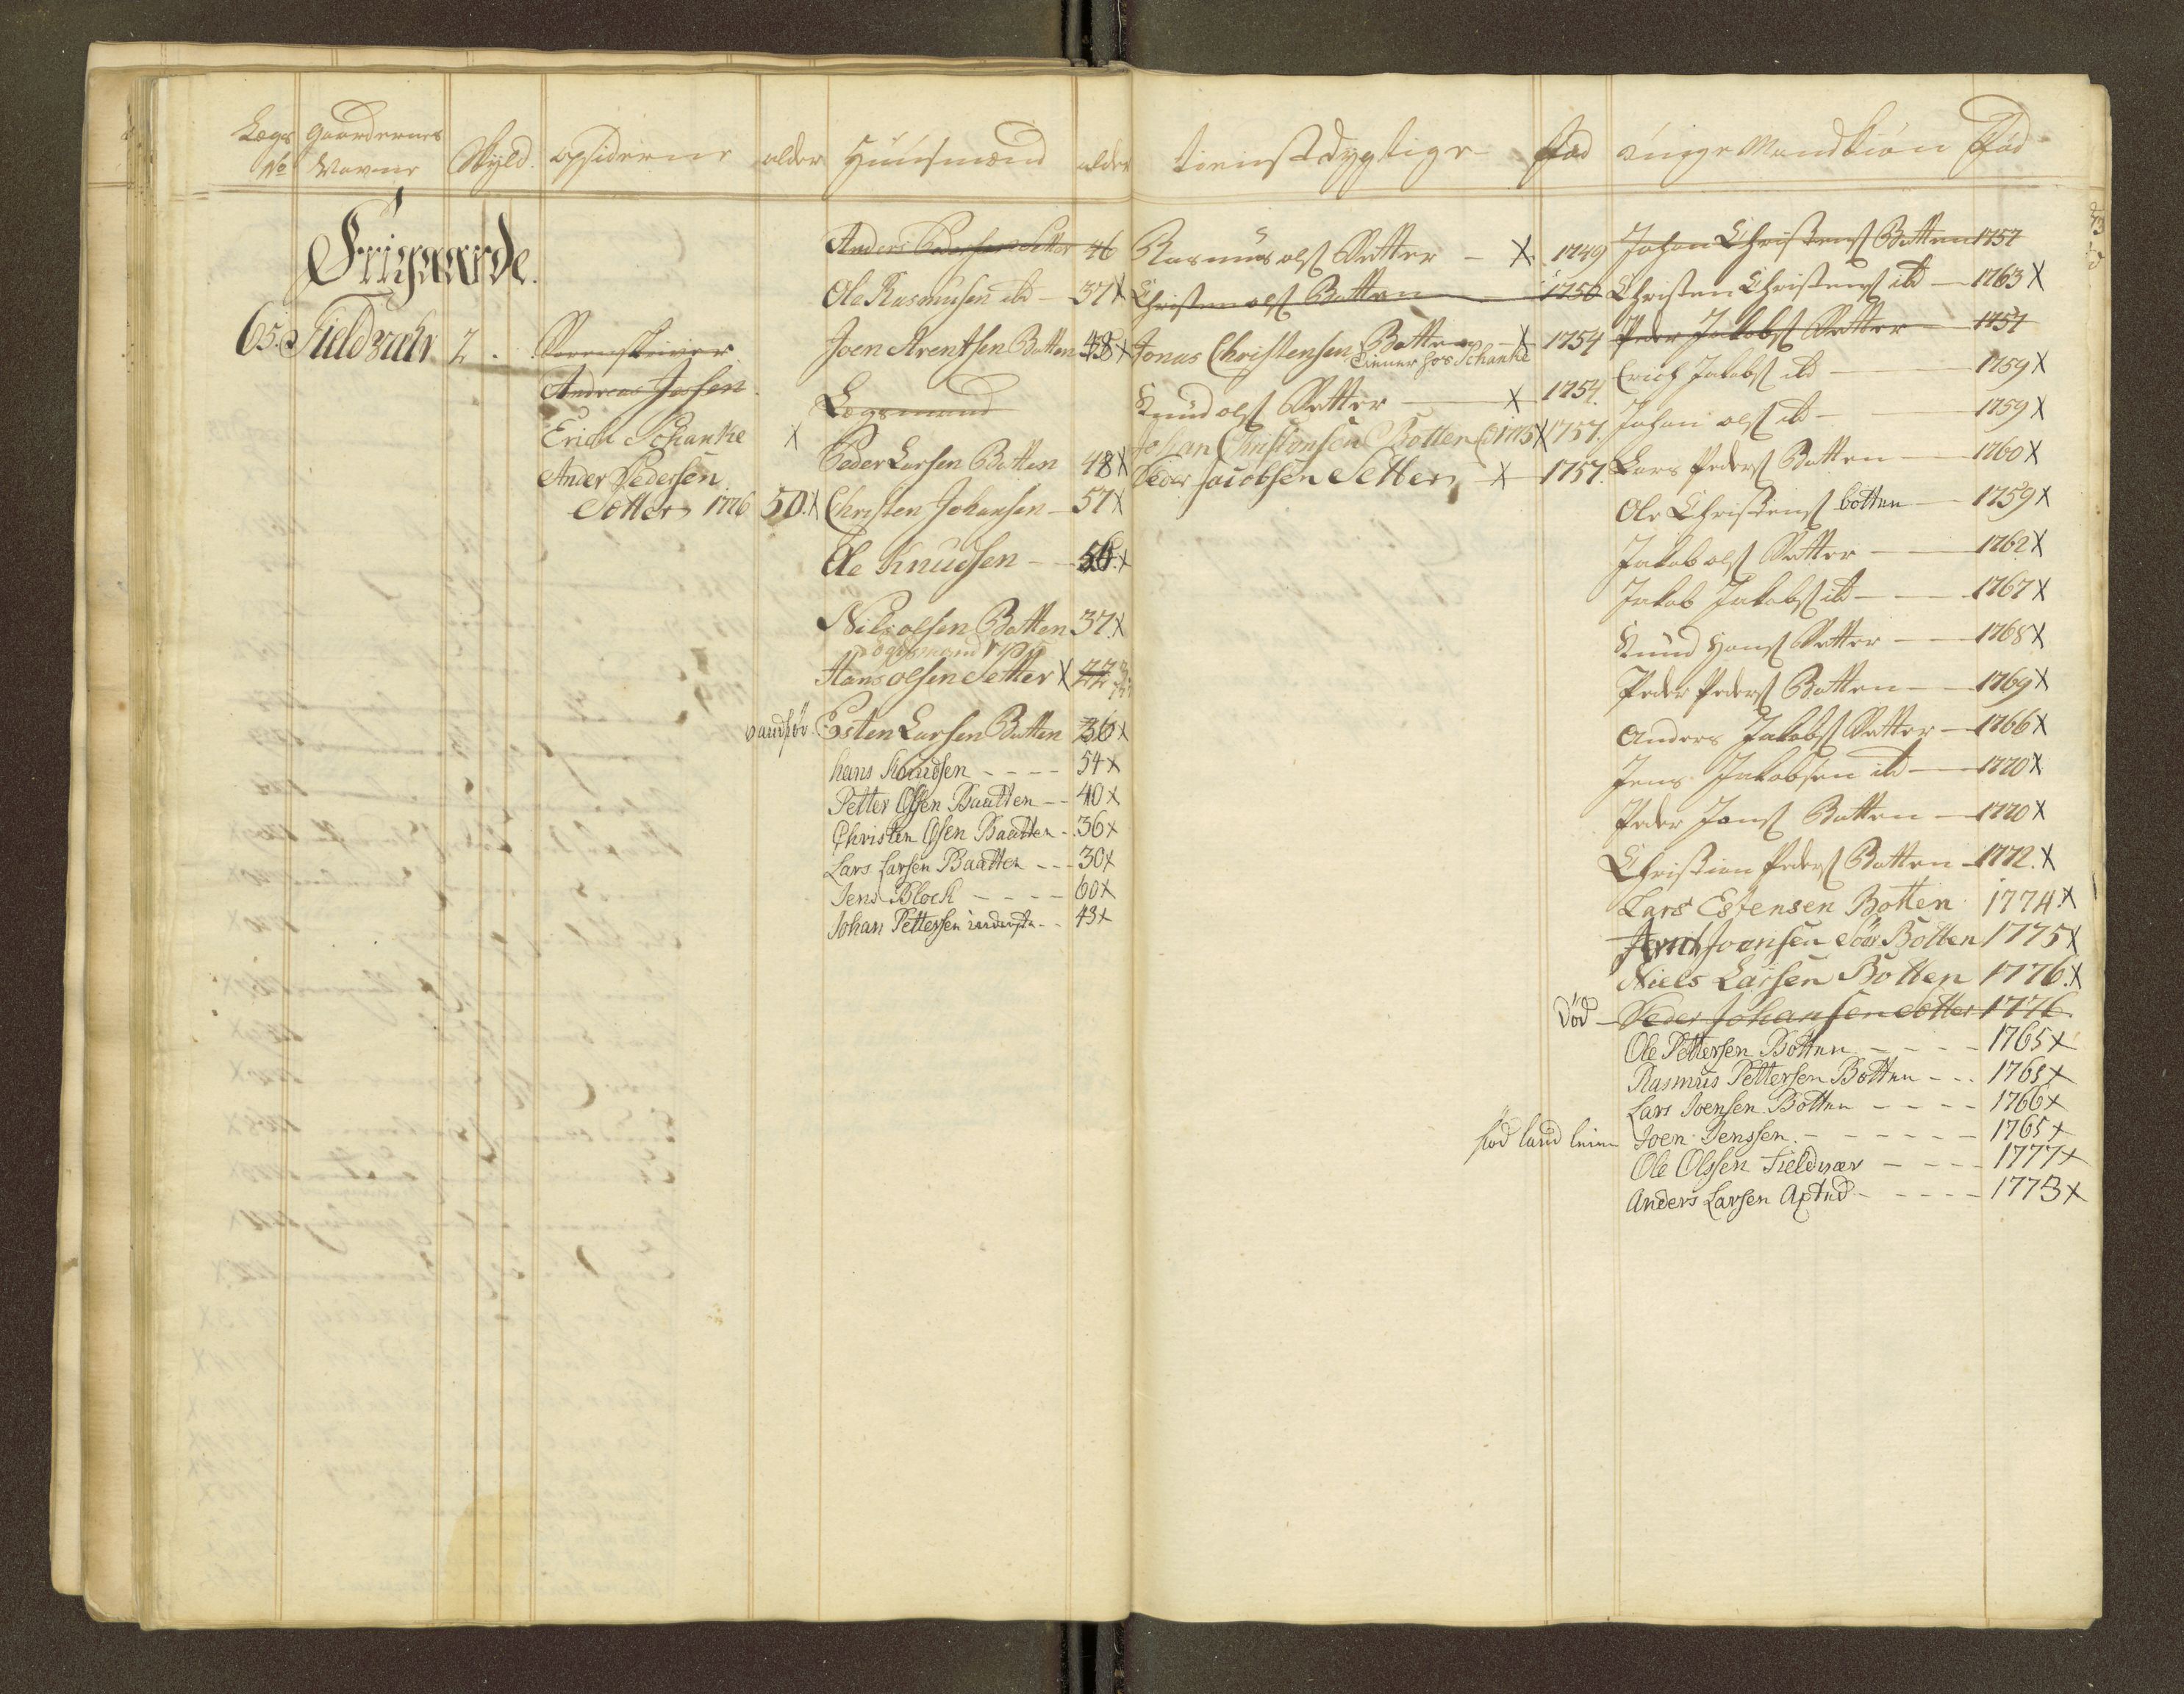 Lægs No Gaardernes Navne Skyld opsiderne alder Huusmænd alder tienstdygtige fød unge Mandkiøn Fød
Friegaarde.
65. Fieldvær 2.
Sorenskriver
Andreas Jessen
Erich Schanke X
Ander Pedersen
Setter 1776 50. X
Anders Pedersen Setter 46
Ole Rasmusen ibd - 37 X
Joen Arentsen Botten 48 X
Lægsmand
Peder Larsen Botten 48 X
Christen Johansen - 57 X
Ole Knudsen - - 50. X
Nils olsen Botten 37. X
Lægsmand
Hans olsen Setter X 22
Esten Larsen Botten 36 X
hans Knudsen - - - - 54 X
Petter Olsen Baatten - - 40 X
Christen Olsen Baatten - 36 X
Lars Larsen Baatten - - - 30 X
Jens Block - - - - 60 X
Johan Pettersen - - 43 X
Rasmus ols Setter - X 1749
Christen ols Botten 1750
Jonas Christensen Botten X 1754
tiener hos Schanke
Knud ols Setter - X 1754.
Johan Christensen Botten X 1757.
Peder Jacobsen Setter X 1757.
Johan Christens Botten 1757
Christen Christens ibd - 1763 X
Peder Jakobs Setter - 1757
Erich Jakobs ibd - 1759 X
Johan ols ibd - 1759 X
Lars Peders Botten - 1760 X
Ole Christens botten - 1759 X
Jakob ols Setter - 1762 X
Jakob Jakobs ibd - 1767 X
Knud Hans Setter - 1768 X
Peder Peders Botten - 1769 X
Anders Jakobs Setter - 1766 X
Jens Jakobsen ibd - 1770 X
Peder Jons Botten - 1770 X
Christian Peders Botten - 1772. X
Lars Estensen Botten 1774 X
Arnt Joensen Söer Botten 1775 X
Niels Larsen Botten 1776. X
Död - Peder Johansen Setter 1776.
Ole Pettersen Botten - - - - 1765 X
Rasmus Pettersen Botten - - - 1768 X
Lars Joensen Botten - - - - 1766 X
Joen Jenssen. - - - - - - 1765 X
Ole Olssen Fieldvær - - - - 1777 X
Anders Larsen - - - - - 1773 X